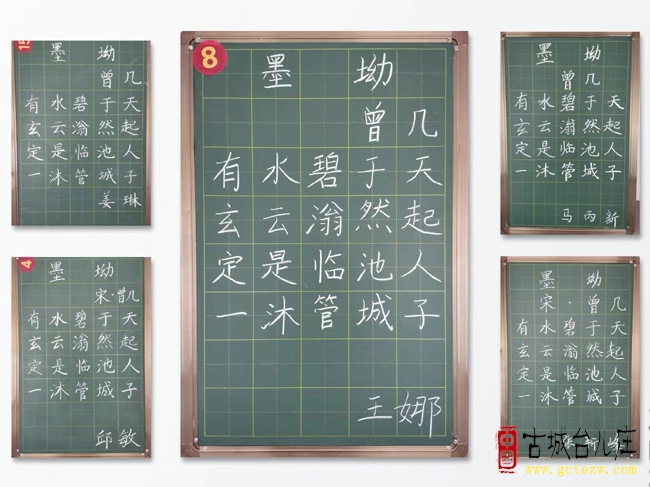 15
墨 坳
曾 几
有 水 碧 于 天
玄 云 滃 然 起
定 是 临 池 人
一 沐 管 城 子
姜 琳
4
墨 坳
宋·曾几
有 水 碧 于 天
玄 云 滃 然 起
定 是 临 池 人
一 沐 管 城 子
邱 敏
8
墨 坳
曾 几
有 水 碧 于 天
玄 云 滃 然 起
定 是 临 池 人
一 沐 管 城 子
王 娜
墨 坳
曾 几
有 水 碧 于 天
玄 云 滃 然 起
定 是 临 池 人
一 沐 管 城 子
马 丙 新
墨 坳
宋 · 曾 几
有 水 碧 于 天
玄 云 滃 然 起
定 是 临 池 人
一 沐 管 城 子
中国
古城台儿庄
www.gctezw.com